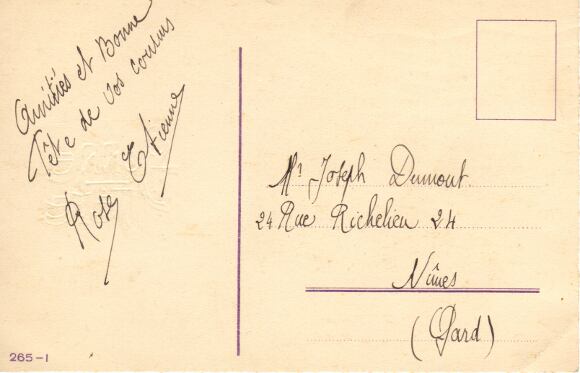 Amitiés et Bonne
Fête de vos cousins
Rose Etienne
Mr Joseph Dumont
24 Rue Richelieu 24
Nîmes
(Gard)
265-I